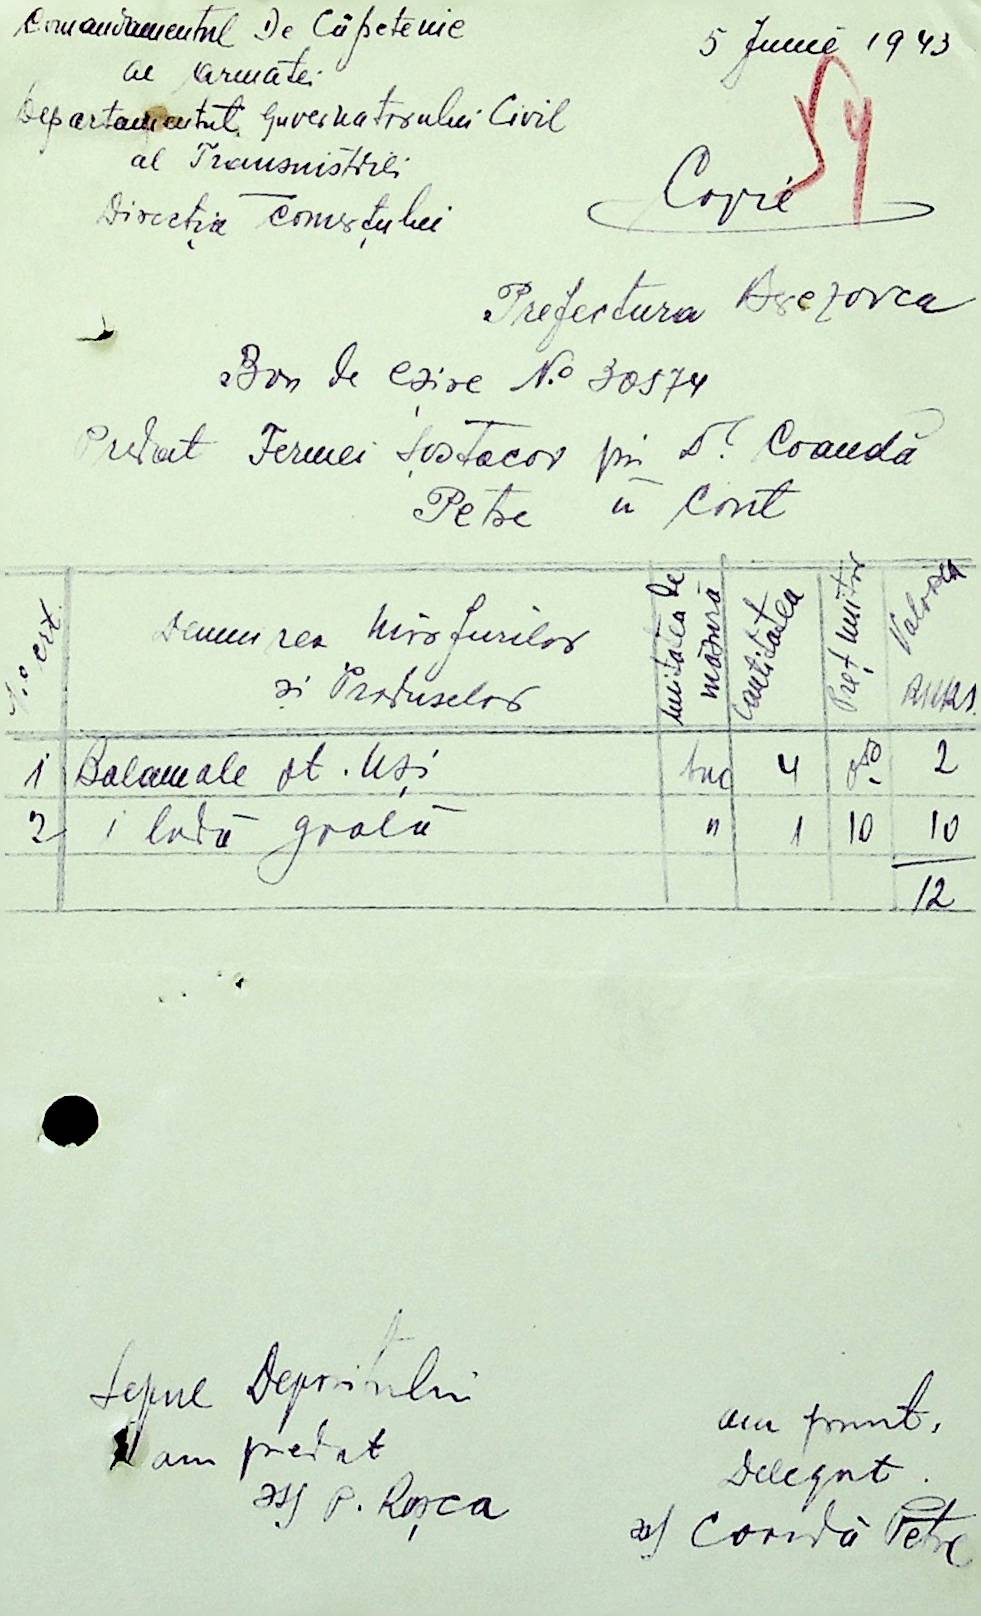 Comandamentul De Căpetenie
al Armatei
Departamentul Guvernatorului Civil
al Transnistriei
Direcția Comerțului
5 Junie 1943
54
Copie
Prefectura Berezovca
Bon de eșire No 30574
Predat Fermei Șostacov prin D. Coandă
Petre în Cont
No crt.
Denumirea Mărfurilor
și Produselor
Unitatea de
măsură
Cantitatea
Preț unitar
Valoarea
RMKS.
1 Balamale pt. Uși buc 4 0,50 2
2 1 ladă goală " 1 10 10
12
Șeful Depozitului
am predat
ss/ P. Roșca
am primit,
Delegat.
ss/ Coandă Petre